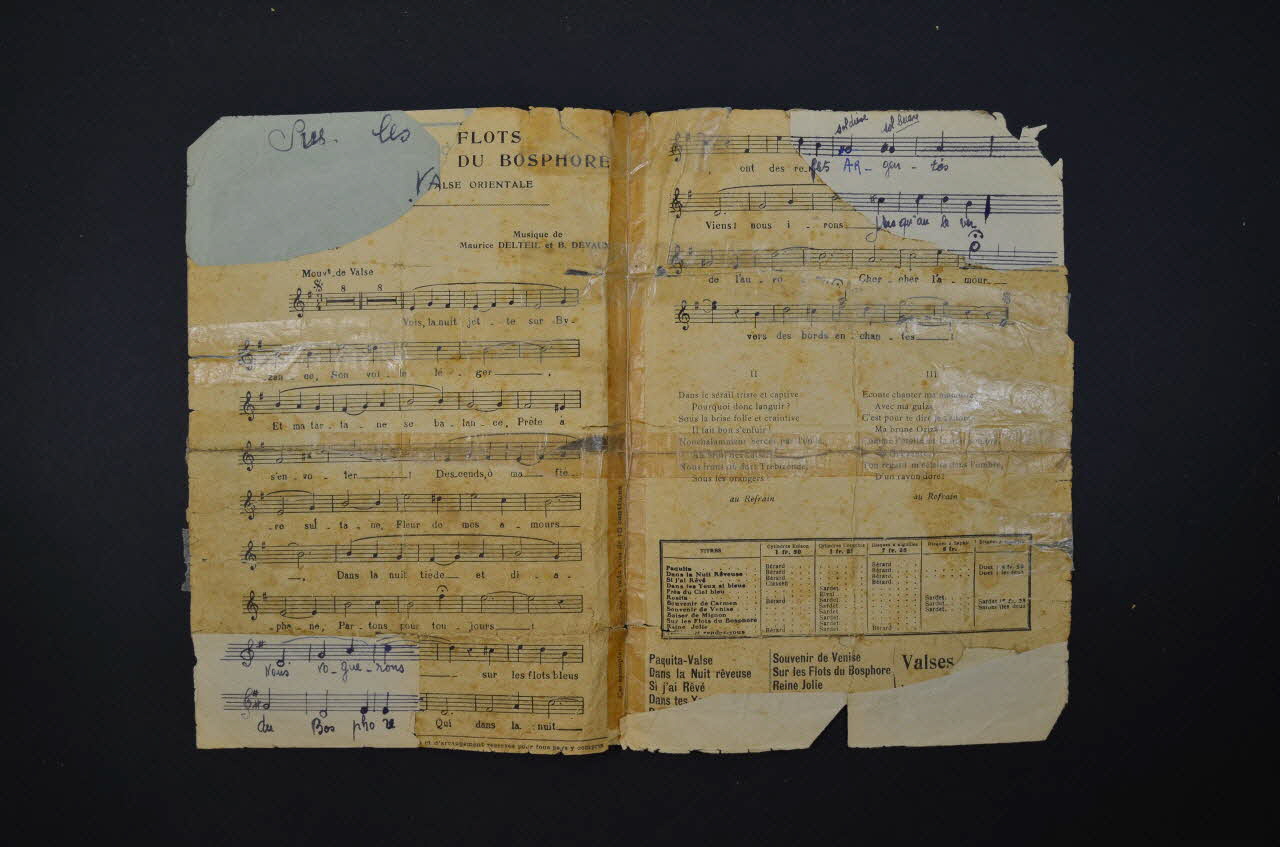 Sur les FLOTS
DU BOSPHORE
VALSE ORIENTALE
Musique de
Maurice DELTEIL et B. DEVAUX
Mouvt de Valse
8 8
Vois, la nuit jet - te sur By-
zan - ce, Son voi - le lé - ger ,
Et ma tar - ta - ne se ba - lan - ce, Prête à
s'en - vo - ler ! Descends, ô ma fiè -
- re sul - ta - ne, Fleur de mes a - mours
Dans la nuit tiède et di - a -
pha - ne, Par - tons pour tou - jours !
Nous vo - gue - rons sur les flots bleus
du Bos pho re Qui dans la nuit
et d'arrangement réservés pour tous pays y compris
sol dièse sol bécarre
ont des re - flets AR - gen - tés
Viens! nous i - rons jusqu'au le ver
de l'au - ro - Cher - cher l'a - mour
vers des bords en - chan - tés !
II
Dans le sérail triste et captive
Pourquoi donc languir ?
Sous la brise folle et craintive
Il fait bon s'enfuir !
Nonchalamment bercés par l'onde
Nous irons où dort Trébizonde,
Sous les orangers !
au Refrain
III
Ecoute chanter ma
Avec ma guzla
C'est pour te dire
Ma brune Oriza !
Ton regard m'éclaire dans l'ombre,
D'un rayon doré !
au Refrain
TITRES Cylindres Edison 1 fr. 50 Cylindres 1 fr. Disques à aiguilles 7 fr. 25 Disques à Saphir 5 fr.
Paquita Bérard Bérard
Dans la Nuit Rêveuse Bérard Bérard Duet : 4 fr. 50
Si j'ai Rêvé Bérard Bérard Duet : les deux
Dans tes Yeux si bleus Bérard
Près du Ciel bleu Sardet
Rosita
Souvenir de Carmen Bérard Sardet Sardet
Souvenir de Venise Sardet Sardet
Baiser de Mignon Sardet
Sur les Flots du Bosphore Sardet
Reine Jolie Sardet
rendez-vous Bérard Sardet Bérard
Paquita-Valse
Dans la Nuit rêveuse
Si j'ai Rêvé
Dans tes
Souvenir de Venise
Sur les Flots du Bosphore
Reine Jolie
Valses